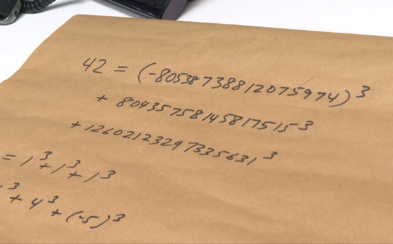 42 = (-80538738812075974)³
+ 80435758145817515³
+ 12602123297335631³
= 1³ + 1³ + 1³
³ + 4³ + (-5)³